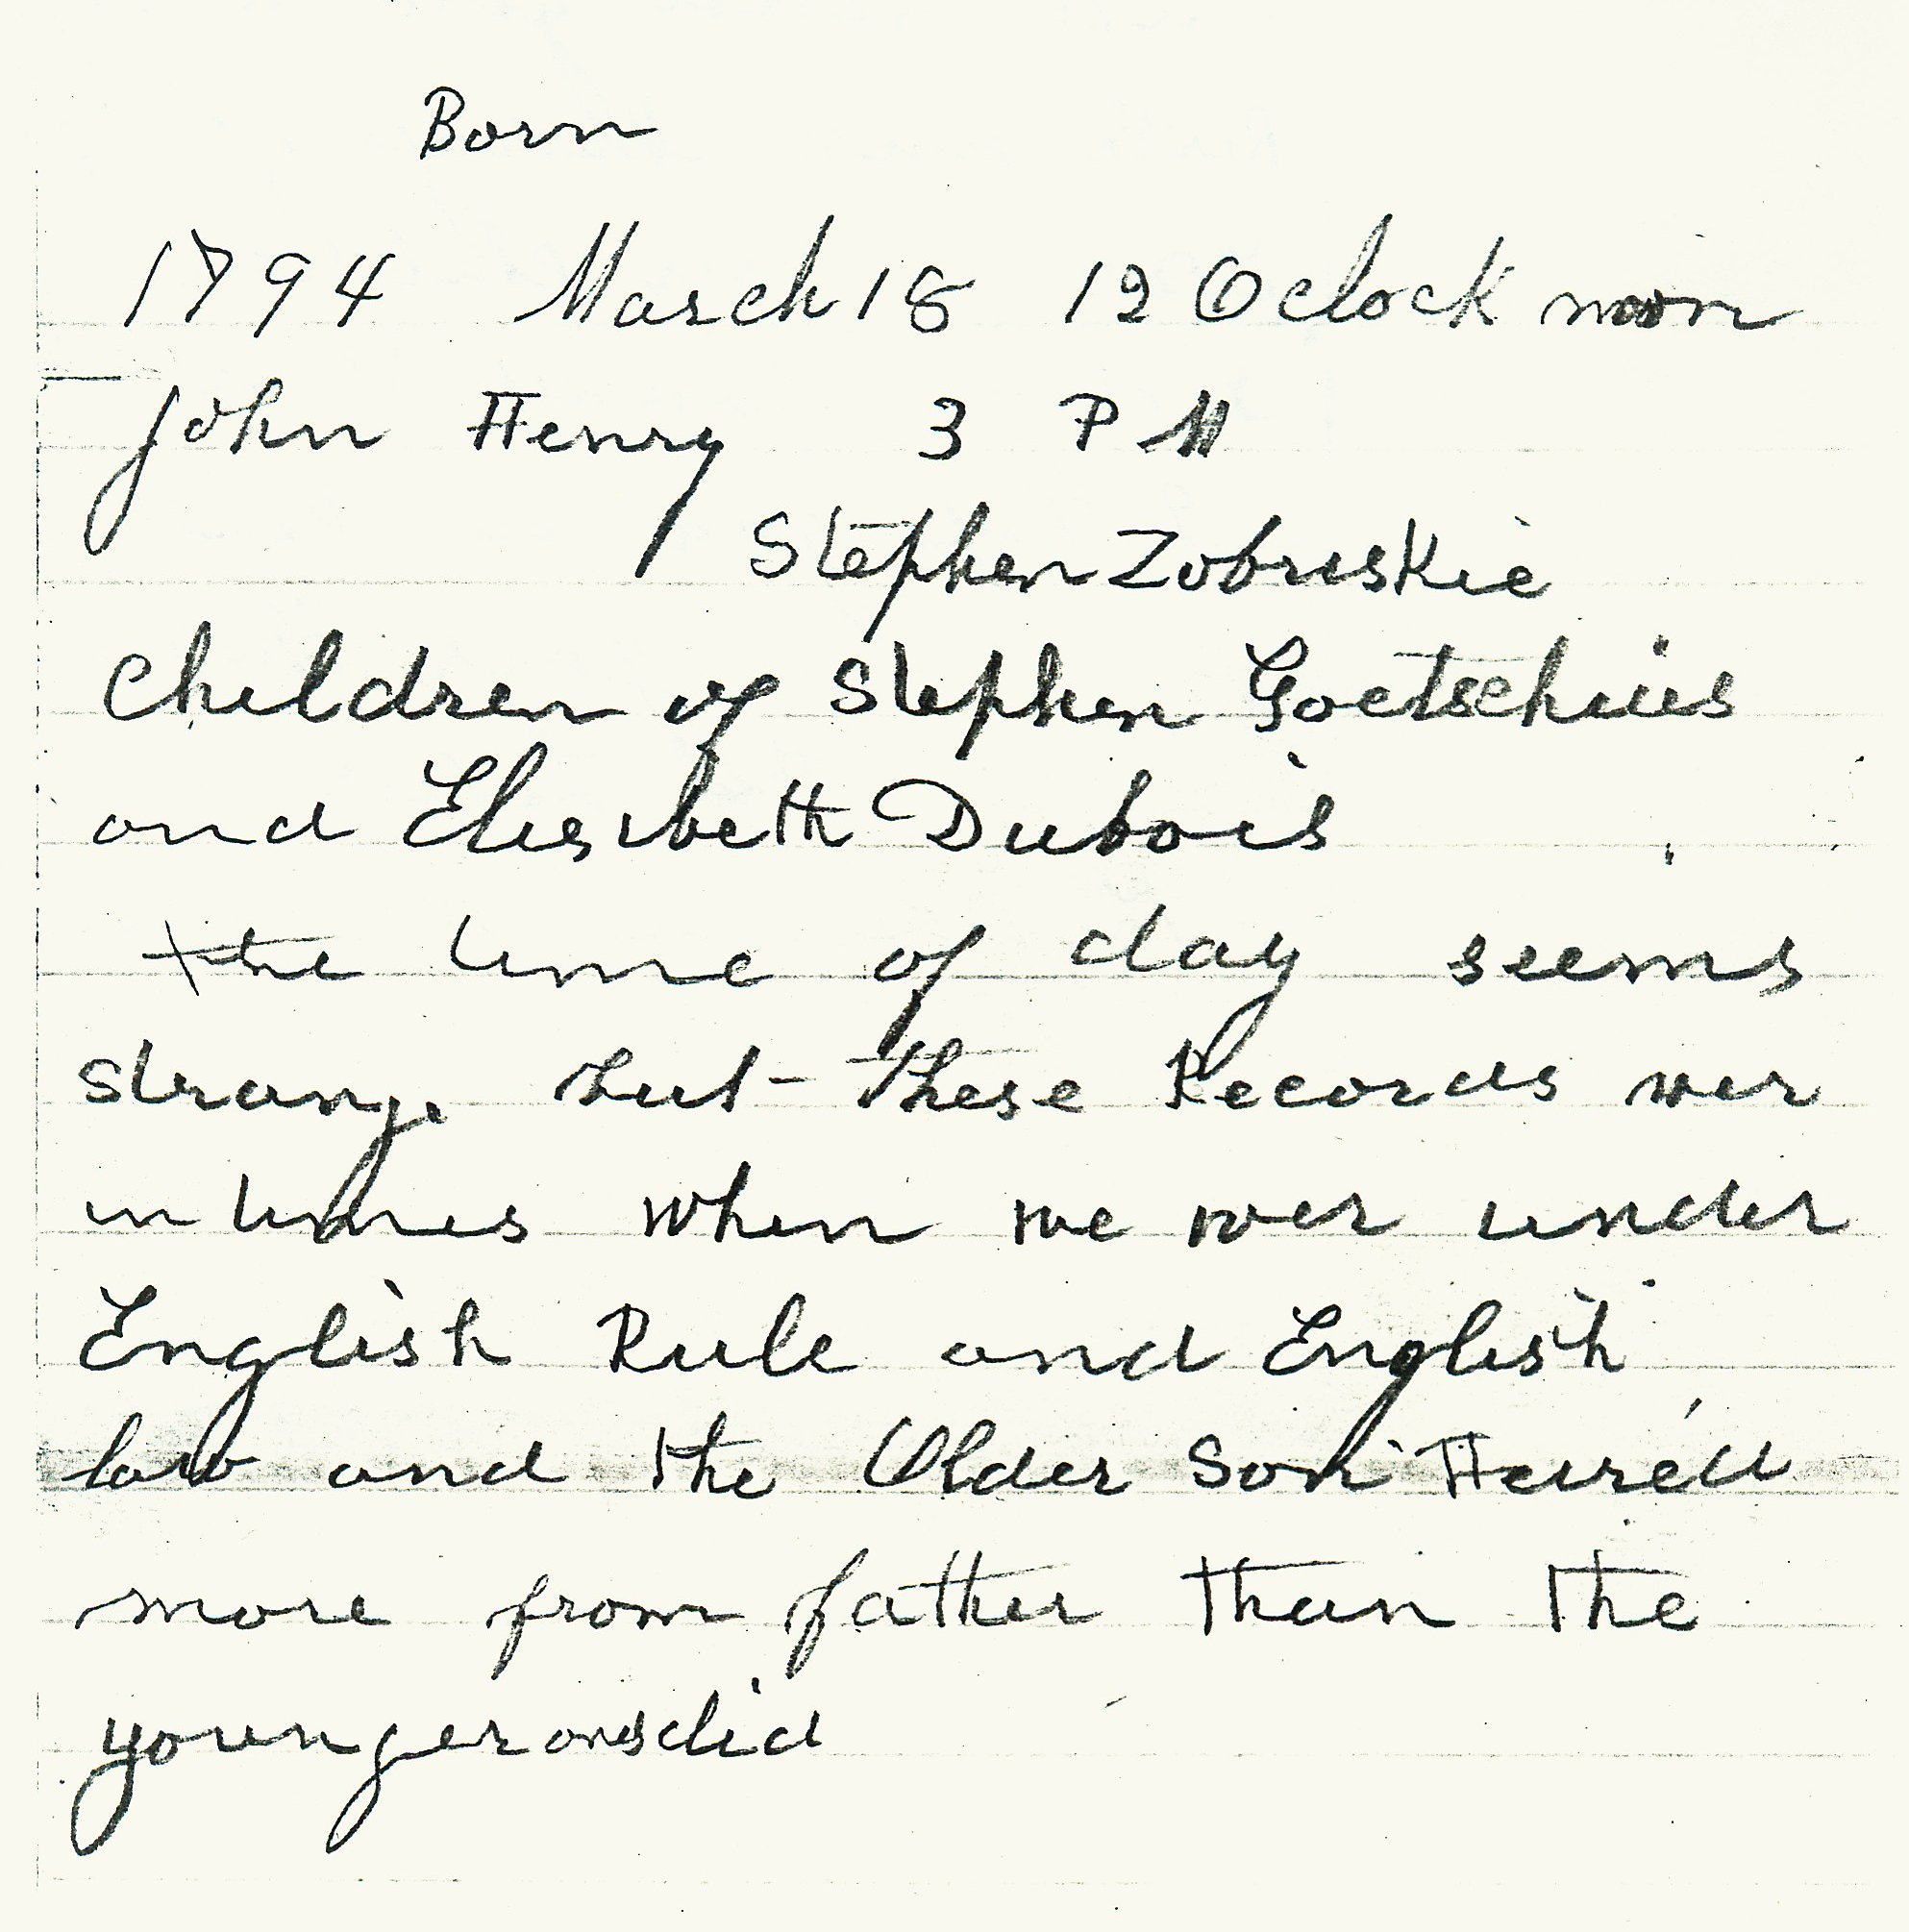 Born
1794 March 18 12 Oclock noon
John Henry 3 PM
Stephen Zobriskie
Children of Stephen Goetschius
and Elesibeth Dubois
the time of day seems
strange but these Records wer
in times when we wer under
English Rule and English
law and the Older Son
more from father than the
younger ons did